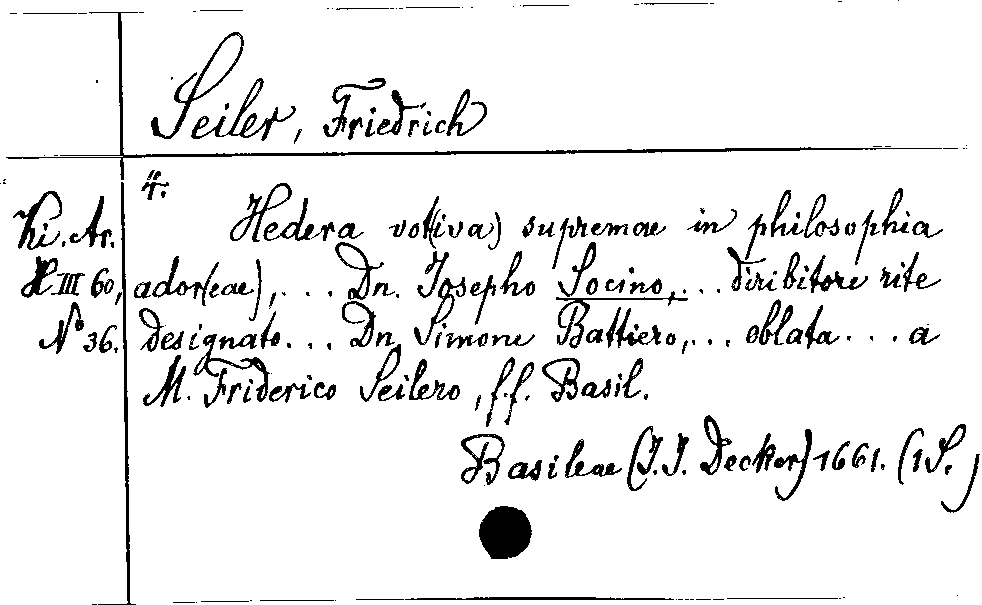 Seiler, Friedrich
4:
Ki. Ar. Hedera vot(iva) supremae in philosophia
H. III 60, ador(eae), ... Dn. Josepho Socino, ... diribitore rite
No 36. designato ... Dn. Simone Battiero, ... oblata ... a
M. Friderico Seilero, f.f. Basil.
Basileae (J.J. Decker) 1661. (1 S.)